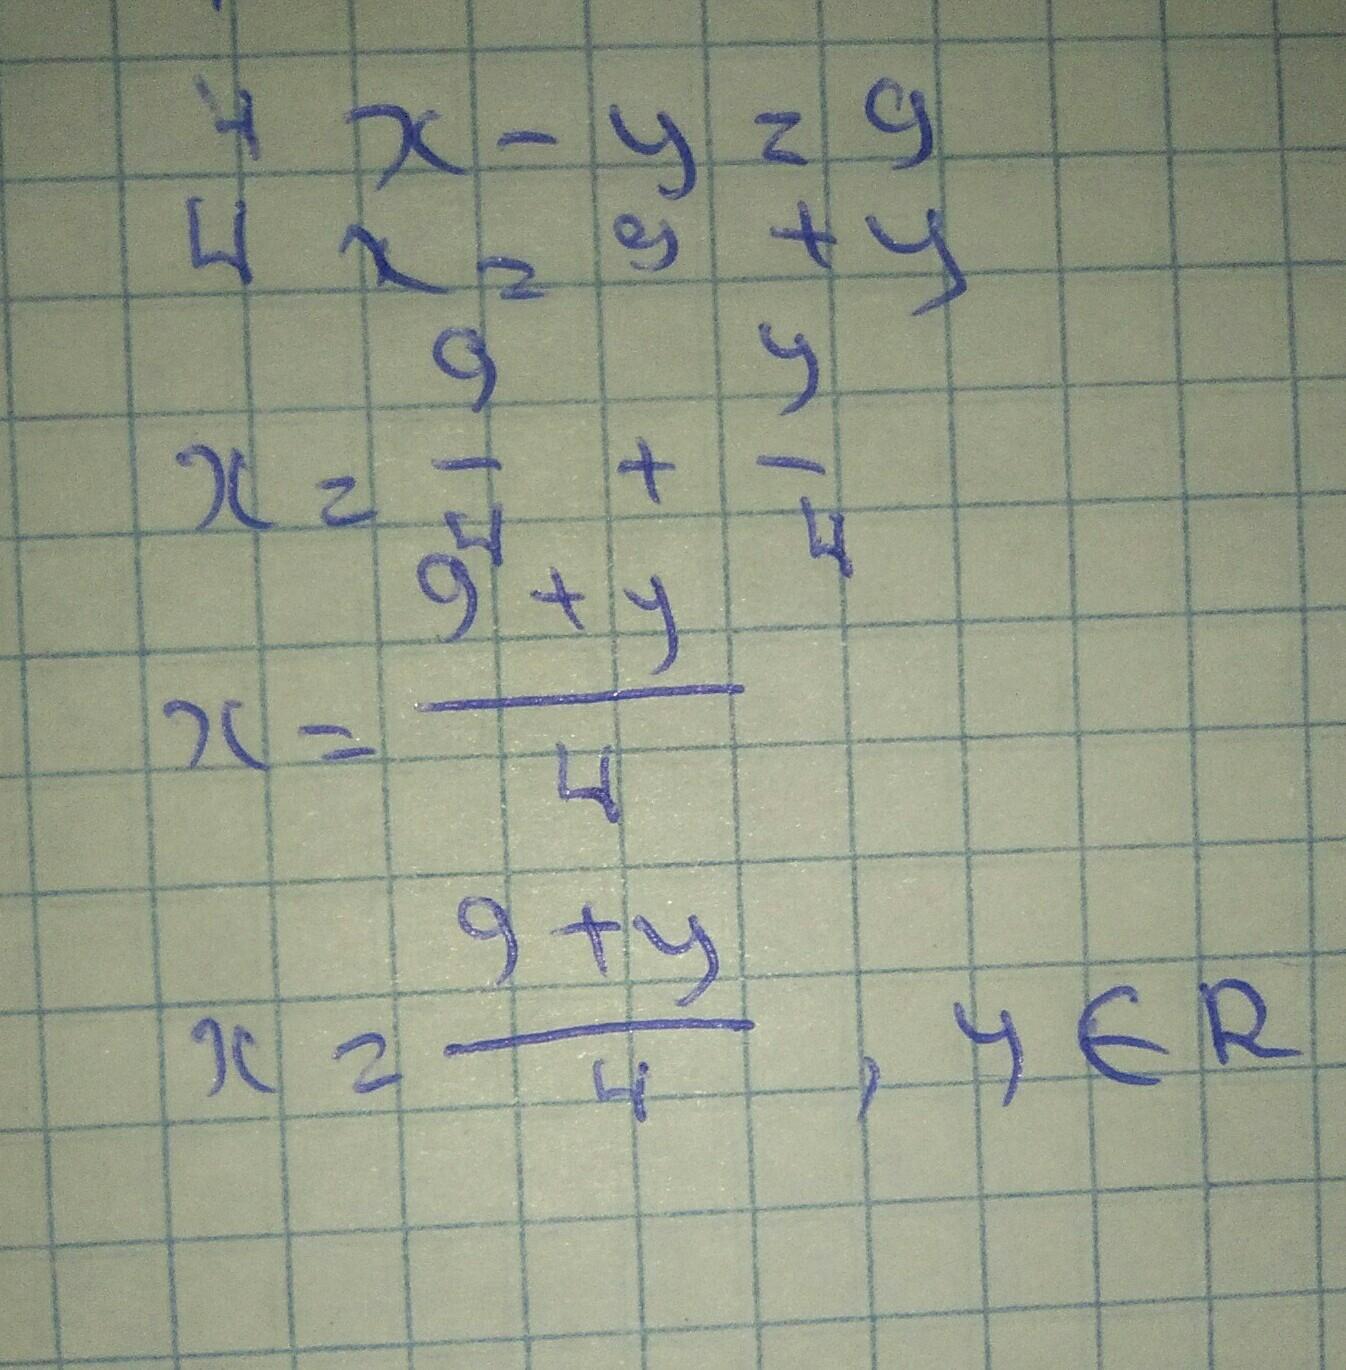 4 x - y = 9
4 x = 9 + y
x = 9/4 + y/4
x = (9 + y)/4
x = (9 + y)/4 , y ∈ R